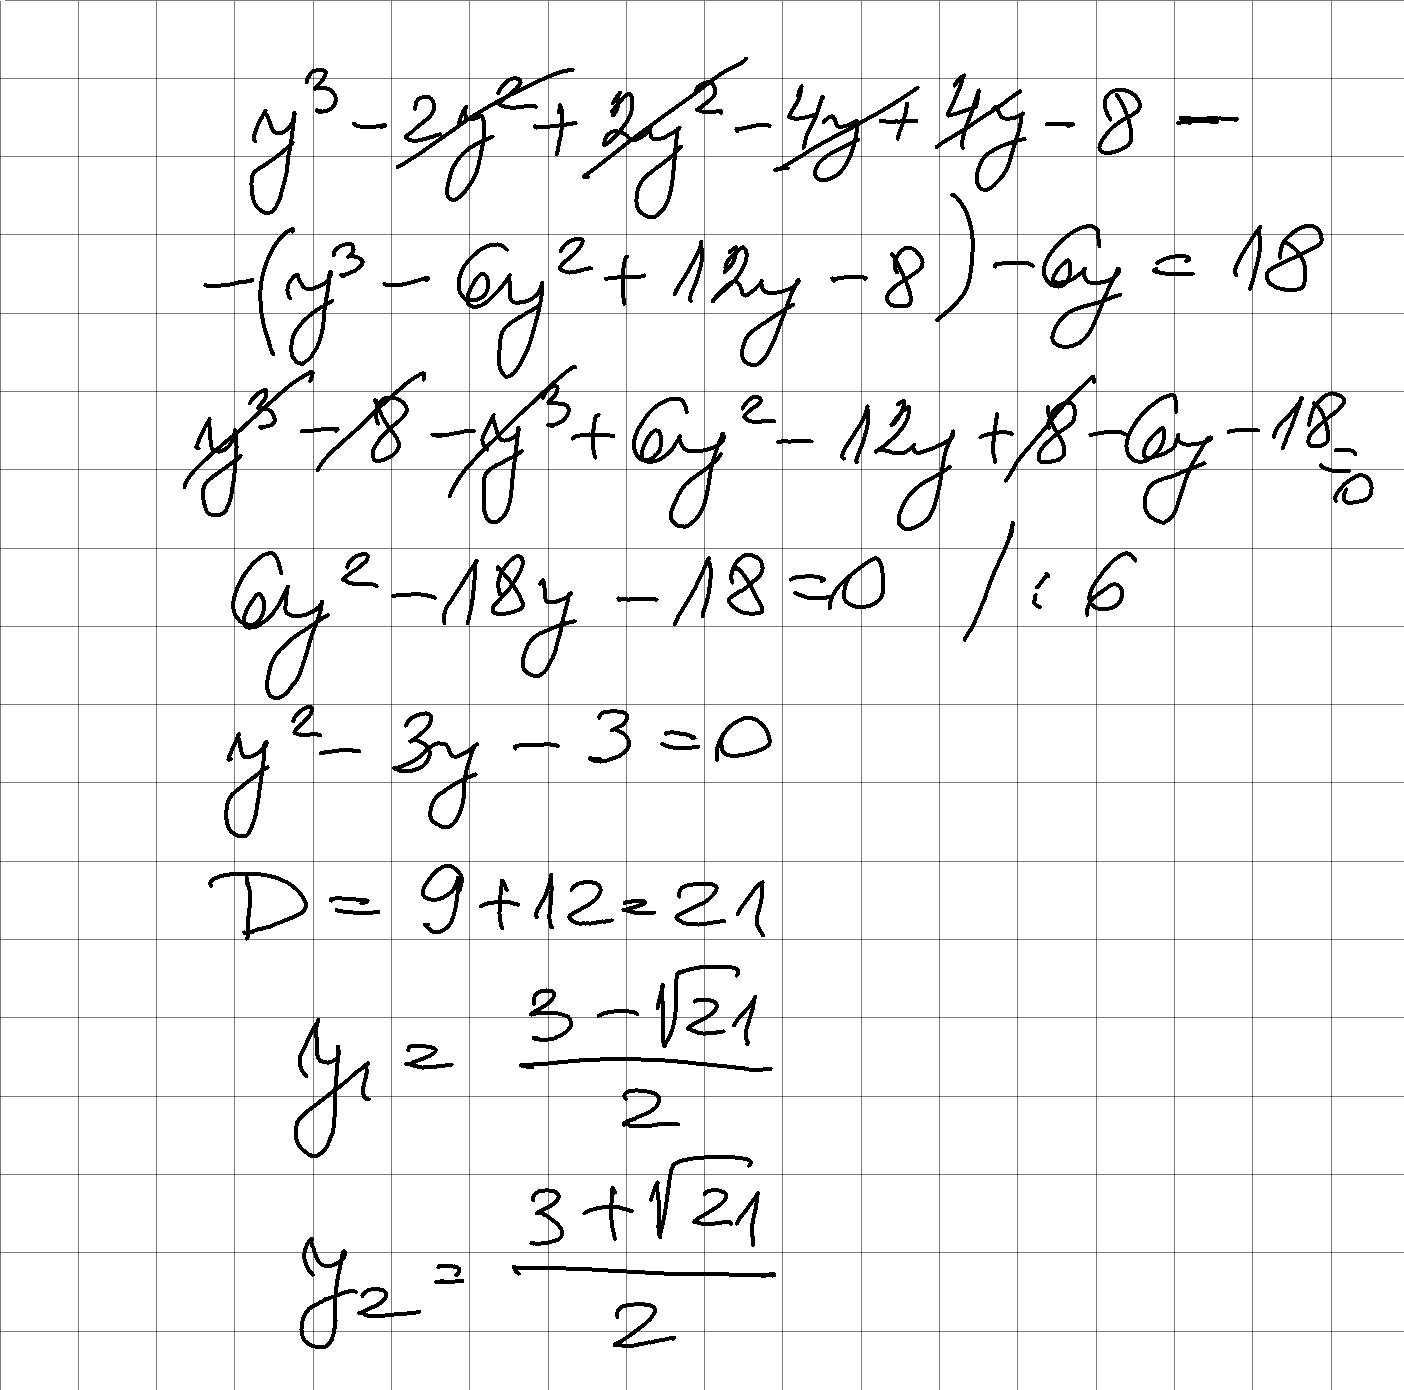 y³ - 2y² + 2y² - 4y + 4y - 8 -
- (y³ - 6y² + 12y - 8) - 6y = 18
y³ - 8 - y³ + 6y² - 12y + 8 - 6y - 18 = 0
6y² - 18y - 18 = 0 / : 6
y² - 3y - 3 = 0
D = 9 + 12 = 21
y₁ = (3 - √21)/2
y₂ = (3 + √21)/2